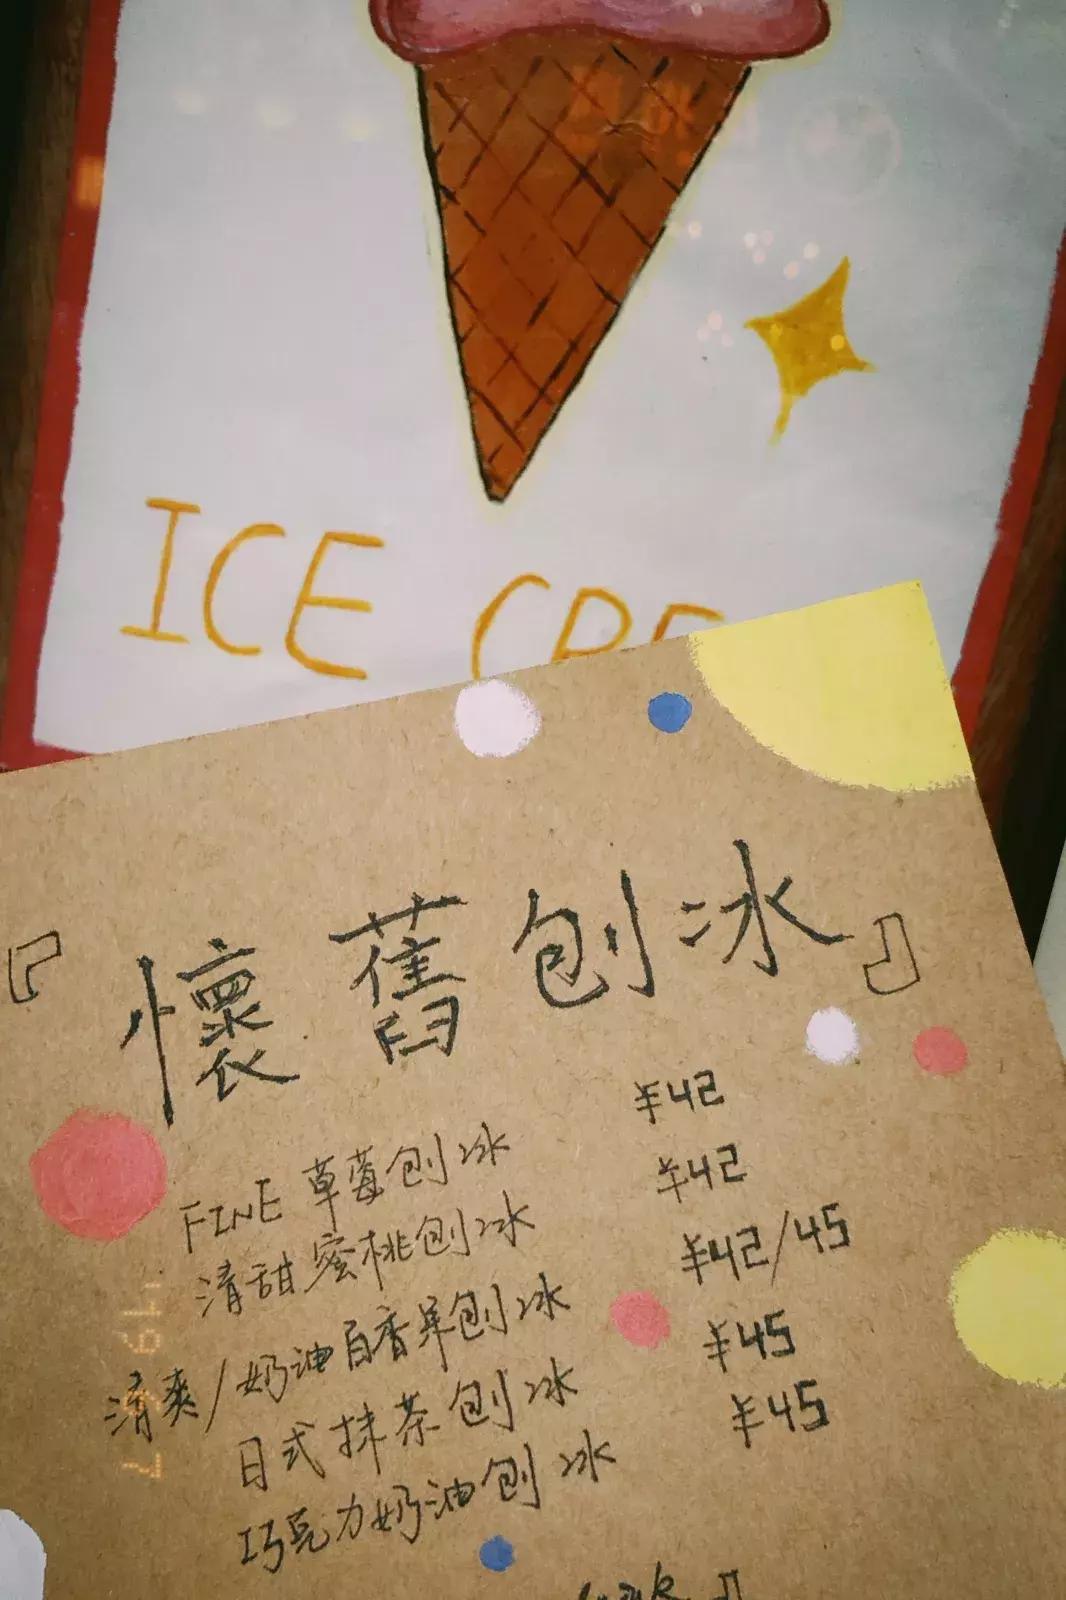 ICE CRE
『懷舊刨冰』
FINE 草莓刨冰 ¥42
清甜蜜桃刨冰 ¥42
清爽/奶油百香果刨冰 ¥42/45
日式抹茶刨冰 ¥45
巧克力奶油刨冰 ¥45